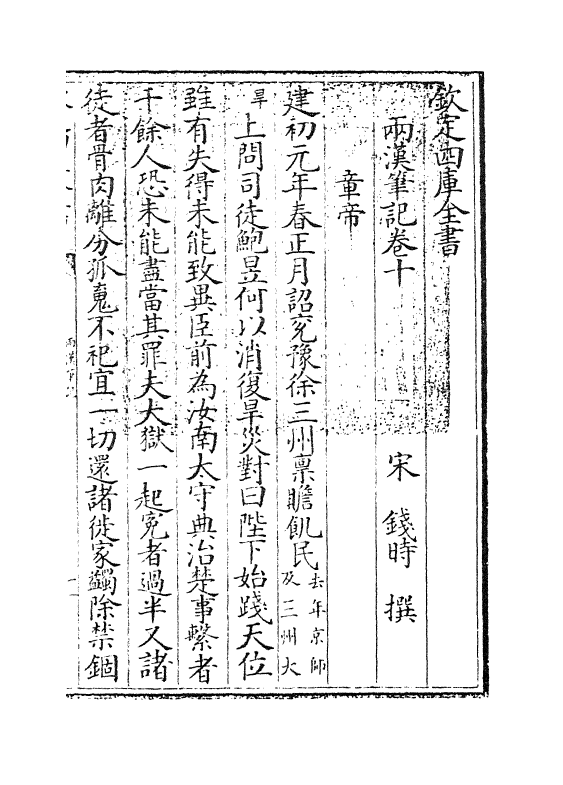 欽定四庫全書
兩漢筆記卷十　宋　錢時　撰
章帝
建初元年春正月詔兖豫徐三州稟贍飢民去年京師及三州大
旱上問司徒鮑昱何以消復旱災對曰陛下始踐天位
雖有失得未能致異臣前為汝南太守典治楚事繫者
千餘人恐未能盡當其罪夫大獄一起寃者過半又諸
徒者骨肉離分孤䰟不祀宜一切還諸徙家蠲除禁錮